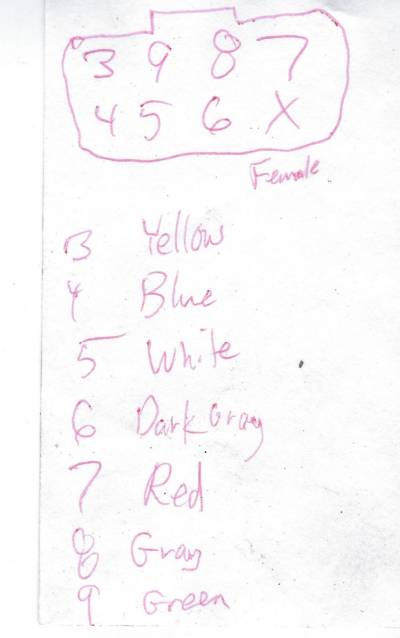 3 9 8 7
4 5 6 X
Female
3 Yellow
4 Blue
5 White
6 Dark Gray
7 Red
8 Gray
9 Green